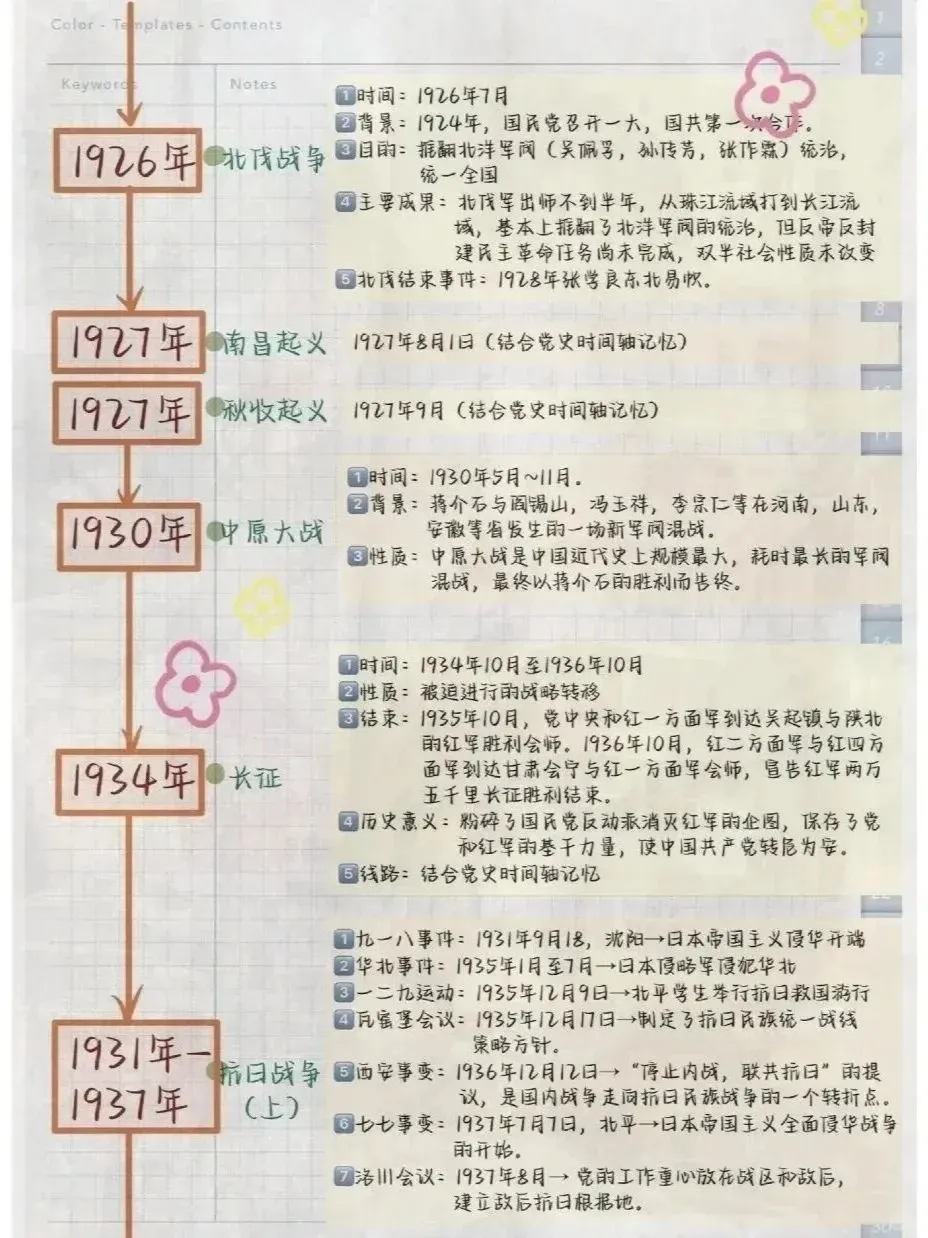 Color - Templates - Contents
1
2
Keywords
Notes
1926年
北伐战争
1 时间：1926年7月
2 背景：1924年，国民党召开一大，国共第一次合作。
3 目的：推翻北洋军阀（吴佩孚，孙传芳，张作霖）统治，
统一全国
4 主要成果：北伐军出师不到半年，从珠江流域打到长江流
域，基本上推翻了北洋军阀的统治，但反帝反封
建民主革命任务尚未完成，双半社会性质未改变
5 北伐结束事件：1928年张学良东北易帜。
8
1927年
南昌起义
1927年8月1日（结合党史时间轴记忆）
1927年
秋收起义
1927年9月（结合党史时间轴记忆）
11
1930年
中原大战
1 时间：1930年5月~11月.
2 背景：蒋介石与阎锡山，冯玉祥，李宗仁等在河南，山东，
安徽等省发生的一场新军阀混战。
3 性质：中原大战是中国近代史上规模最大，耗时最长的军阀
混战，最终以蒋介石的胜利而告终。
16
1934年
长征
1 时间：1934年10月至1936年10月
2 性质：被迫进行的战略转移
3 结束：1935年10月，党中央和红一方面军到达吴起镇与陕北
的红军胜利会师。1936年10月，红二方面军与红四方
面军到达甘肃会宁与红一方面军会师，宣告红军两万
五千里长征胜利结束。
4 历史意义：粉碎了国民党反动派消灭红军的企图，保存了党
和红军的基干力量，使中国共产党转危为安。
5 线路：结合党史时间轴记忆
1931年—
1937年
抗日战争
（上）
1 九一八事件：1931年9月18，沈阳→日本帝国主义侵华开端
2 华北事件：1935年1月至7月→日本侵略军侵犯华北
3 一二九运动：1935年12月9日→北平学生举行抗日救国游行
4 瓦窑堡会议：1935年12月17日→制定了抗日民族统一战线
策略方针。
5 西安事变：1936年12月12日→“停止内战，联共抗日”的提
议，是国内战争走向抗日民族战争的一个转折点。
6 七七事变：1937年7月7日，北平→日本帝国主义全面侵华战争
的开始。
7 洛川会议：1937年8月→ 党的工作重心放在战区和敌后，
建立敌后抗日根据地。